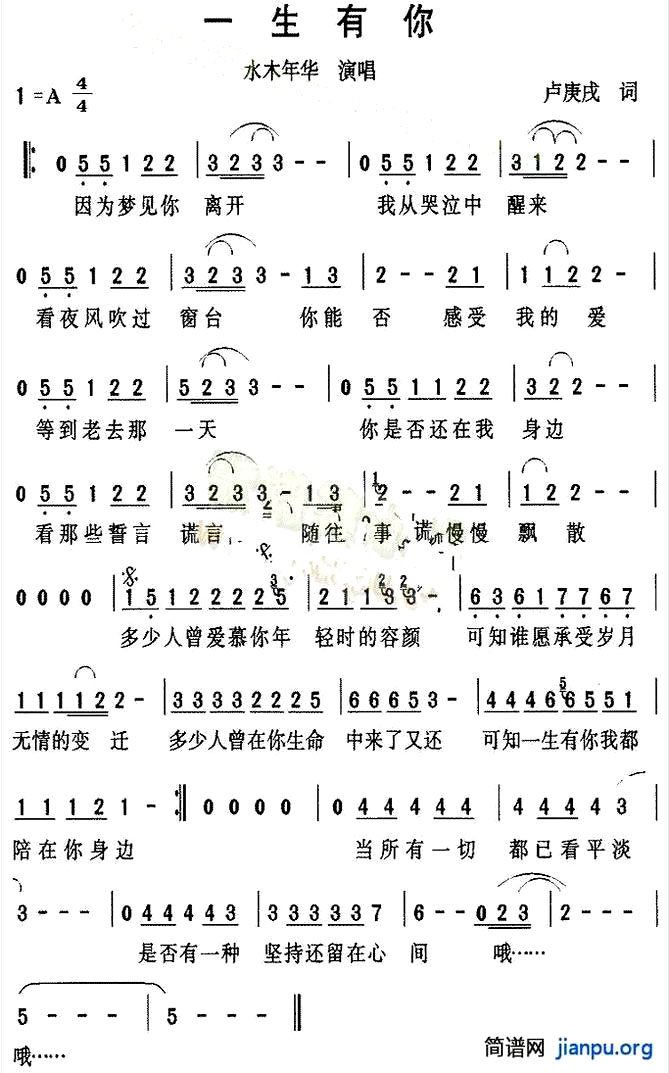 一 生 有 你
水木年华 演唱
1 =A 4/4
卢庚戌 词
0 5 5 1 2 2 | 3 2 3 3 3 - - | 0 5 5 1 2 2 | 3 1 2 2 2 - - |
因为梦见你 离开 我从哭泣中 醒来
0 5 5 1 2 2 | 3 2 3 3 - 1 3 | 2 - - 2 1 | 1 1 2 2 - |
看夜风吹过 窗台 你能 否 感受 我的 爱
0 5 5 1 2 2 | 5 2 3 3 - - | 0 5 5 1 1 2 2 | 3 2 2 - - |
等到老去那 一天 你是否还在我 身边
0 5 5 1 2 2 | 3 2 3 3 - 1 3 | 2 - - 2 1 | 1 2 2 - |
看那些誓言 谎言 随往 事 慢慢 飘散
0 0 0 0 | 1 5 1 2 2 2 2 5 | 2 1 1 3 3 - | 6 3 6 1 7 7 6 7 |
多少人曾爱慕你年 轻时的容颜 可知谁愿承受岁月
1 1 1 1 2 2 - | 3 3 3 3 2 2 2 5 | 6 6 6 5 3 - | 4 4 4 6 6 5 5 1 |
无情的变 迁 多少人曾在你生命 中来了又还 可知一生有你我都
1 1 1 2 1 1 - :| 0 0 0 0 | 0 4 4 4 4 4 | 4 4 4 4 3 |
陪在你身边 当所有一切 都已看平淡
3 - - - | 0 4 4 4 4 3 | 3 3 3 3 3 7 | 6 - - 0 2 3 | 2 - - - |
是否有一种 坚持还留在心 间 哦……
5 - - - | 5 - - - ||
哦……
简谱网 jianpu.org